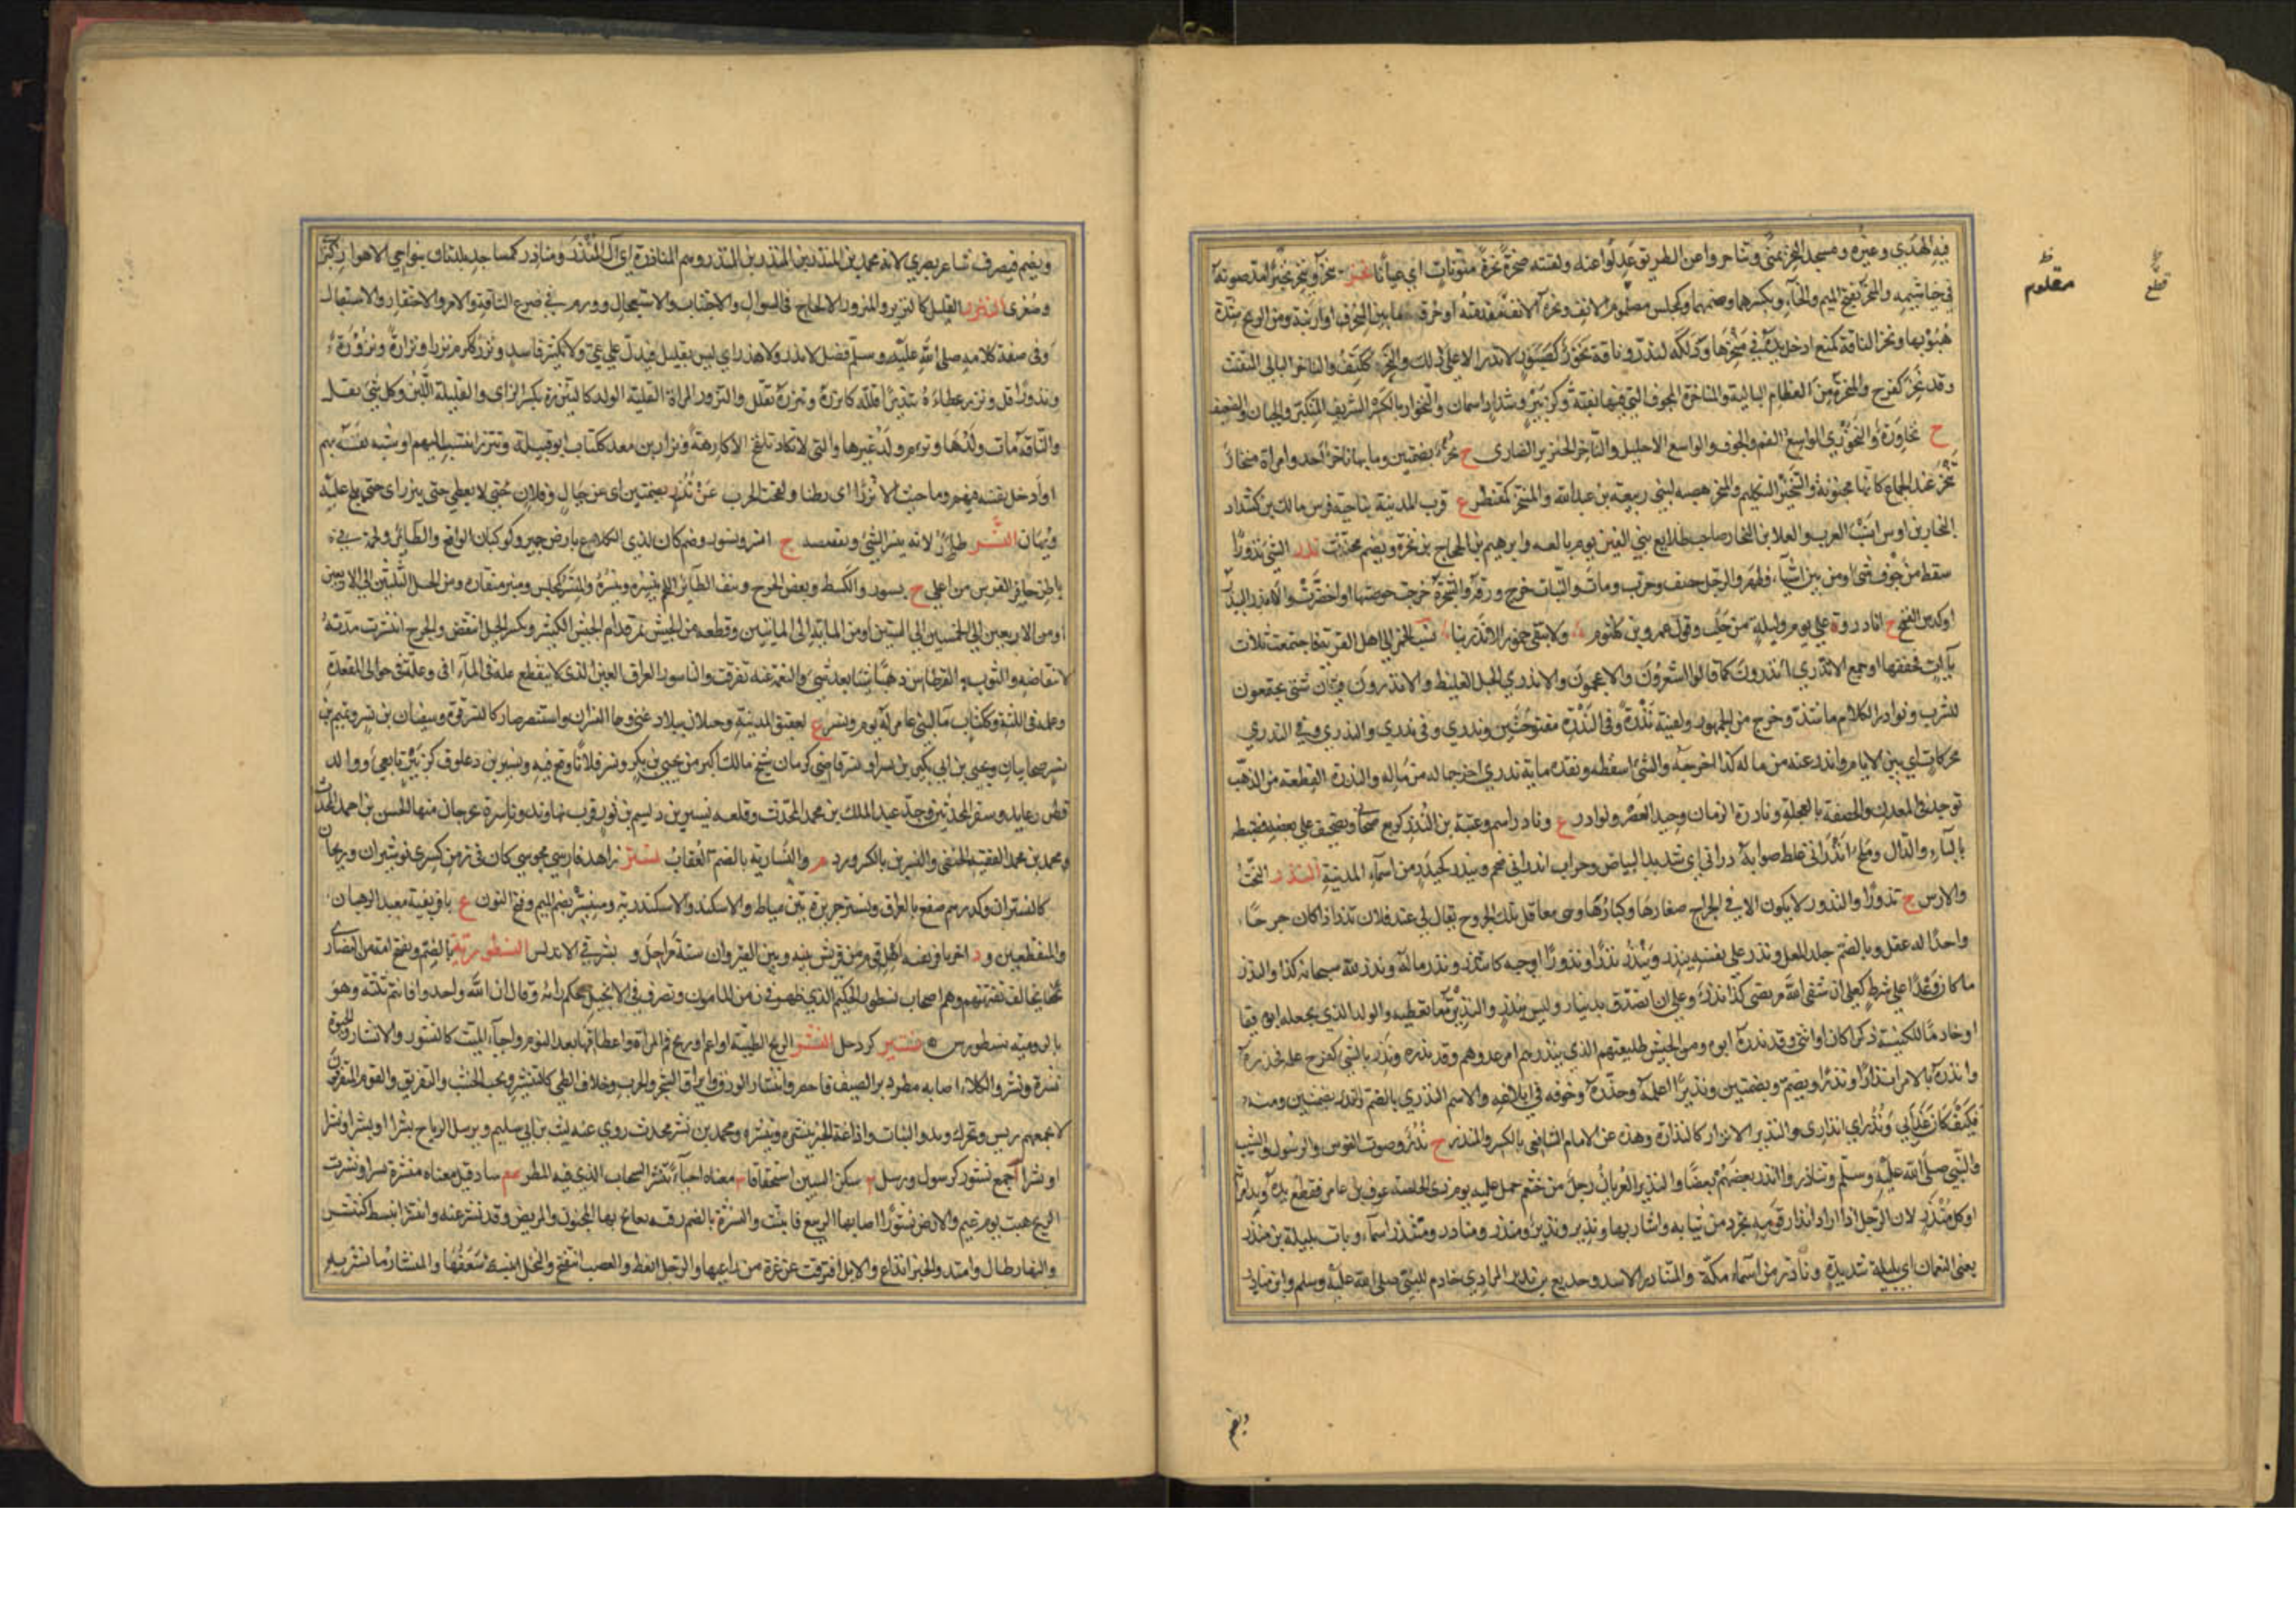 فيه الهدي وغيره ومسجد النحر بمنى وتناحروا عن الطريق عدلوا عنه ولقيته صحرة نحرة منونات اي عيانا نخر ينخر وينخر نخيرا مد صوته
في خياشيمه والمنخر بفتح الميم والخاء وبكسرهما وضمهما وكمجلس الانف ونخرة الانف مقدمته او خرقه او ما بين المنخرين او ارنبته ومن الريح شدة
هبوبها ونخر الناقة كمنع ادخل يده في منخرها ودلكه لتدر وناقة نخور كصبور لا تدر الا على ذلك والنخر ككتف والناخر البالي المتفتت
وقد نخر كفرح والنخرة من العظام البالية والناخرة المجوفة التي فيها ثقبة وكزبير وشداد اسمان والنخوار بالكسر الشريف المتكبر والجبان والضعيف
ح نخاورة والنخوري الواسع الفم والجوف والواسع الاحليل والناخر الخنزير الضاري ح نخر بضمتين وما بها ناخر احد وامراة منخار
تنخر عند الجماع كانها مجنونة والتنخير التكليم والمنخر هضبة لبني ربيعة بن عبد الله والمنتخر كمنتظر ع قرب المدينة بناحية فرش مالك بن كشداد
النخار بن اوس انسب العرب والعلا بن النخار صاحب طلايع بني القين يوم بالعه وابرهيم بن الحجاج بن نخرة ويضم محدث ندر الشئ ندورا
سقط من جوف شئ او من بين اشياء فظهر والرجل خضف وجرب ومات والنبات خرج ورقه والشجرة خرجت خوصتها او اخضرت والاندر البيدر
او كدس القمح ح انادر وة على يوم وليلة من حلب وقول عمرو بن كلثوم ولا تبقي خمور الاندرينا نسب الخمر الى اهل القرية فاجتمعت ثلاث
يآات فخففها او جمع الاندري اندرون كما قالوا الاشعرون والاعجمون والاندري الحبل الغليظ والاندرون فتيان شتى يجتمعون
للشرب ونوادر الكلام ما شذ وخرج من الجمهور ولقيته ندرة وفي الندرة مفتوحتين وندرى وفي ندرى والندرى وفي الندرى
محركات اي بين الايام واندر عنه من ماله كذا اخرجه والشئ اسقطه ونقده مايه ندرى اخرجها له من ماله والندرة القطعة من الذهب
توجد في المعدن والخضفة بالعجلة ونادرة الزمان وحيد العصر ونوادر ع ونادر اسم وعتبة بن الندر كركع صحابي وتصحف على بعضهم فضبطه
بالباء والذال وملح اندراني غلط صوابه ذراني اي شديد البياض وجراب اندراني ضخم ويندر كحيدر من اسماء المدينة النذر النحب
والارش ج نذور والنذور لا يكون الا في الجراح صغارها وكبارها وهي معاقل تلك الجروح يقال لي عند فلان نذر اذا كان جرحا
واحدا له عقل وبالضم جلد المقل ونذر على نفسه ينذر وينذر نذرا ونذورا اوجبه كانتذر ونذر ماله ونذر لله سبحانه كذا والنذر
ما كان وعدا على شرط كعلي ان شفى الله مريضي كذا نذر وعلي ان اتصدق بدينار وليس بنذر والنذيرة ما تعطيه والولد الذي يجعله ابوه قيما
او خادما للكنيسة ذكرا كان او انثى وقد نذره ابوه ومن الجيش طليعتهم الذي ينذرهم امر عدوهم وقد نذره ونذر بالشئ كفرح علمه فحذره
وانذره بالامر انذارا ونذرا ويضم وبضمتين ونذيرا اعلمه وحذره وخوفه في ابلاغه والاسم النذرى بالضم والنذر بضمتين ومنه
فكيف كان عذابي ونذر اي انذاري والنذير الانذار كالنذارة وهذه عن الامام الشافعي بالكسر والمنذر ح نذر وصوت القوس والرسول والشيب
والنبي صلى الله عليه وسلم وتناذروا انذر بعضهم بعضا والنذير العريان رجل من خثعم حمل عليه يوم ذي الخلصة عوف بن عامر فقطع يده ويد امراته
او كل منذر لان الرجل اذا اراد انذار قومه تجرد من ثيابه واشار بها ونذير ونذير ومنذر ومناذر ومنتذر اسماء وبات بليلة بن منذر
يعني النعمان اي بليلة شديدة وناذر من اسماء مكة والمتناذر الاسد وخديع بن نذير المرادي خادم للنبي صلى الله عليه وسلم وابن مناذر
ويضم
ظ
مقلوم
قطع
ويضم فيصرف شاعر بصري لانه محمد بن المنذر بن المنذر بن المنذر وهم المناذرة اي ال المنذر ومناذر كمساجد بلدتان بنواحي الاهواز كبرى
وصغرى النزر القليل كالنزير والمنزور والالحاح في السوال والاحتثاث والاستعجال وورم في ضرع الناقة والامر والاحتقار والاستقلال
وفي صفة كلامه صلى الله عليه وسلم فصل لا نزر ولا هذر اي ليس بقليل فيدل على عي ولا بكثير فاسد ونزر ككرم نزرا ونزارة ونزورة
ونذورا قل ونزر عطاءه تنزيرا قلله كانزره وتنزر تقلل والنزور المراة القليلة الولد كالنزرة بكسر الزاي والقليلة اللبن وكل شئ يقل
والناقة مات ولدها وترام ولد غيرها والتي لا تكاد تلقح الا كارهة ونزار بن معد ككتاب ابو قبيلة وتنزر انتسب اليهم او شبه نفسه بهم
او ادخل نفسه فيهم وما جئت الا نزرا اي بطئا ولقحت الحرب عن نزر بضمتين اي عن حيال وفلان حتى لا يعطي حتى ينزر اي حتى يلح عليه
ويهان النسر طائر لانه ينسر الشئ ويقتلعه ج انسر ونسور وصنم كان لذي الكلاع بارض حمير وكوكبان الواقع والطائر ولحمة في
باطن حافر الفرس من اعلى ح نسور والكشط ونقض الجرح ونتف الطائر اللحم ينسره وينسره والمنسر كمجلس ومنبر منقاره ومن الخيل ما بين الثلثين الى الاربعين
او من الاربعين الى الخمسين الى الستين او من الماية الى الماتين وقطعة من الجيش تمر قدام الجيش الكثير وتنسر الحبل انتقض والجرح انتشرت مدته
لانتقاضه والثوب والقرطاس ذهبا شيئا بعد شئ والنعمة عنه تفرقت والناسور العرق الغبر الذي لا ينقطع علة في المآقي وعلة في حوالي المقعدة
وعلة في اللثة وككتاب ماء لبني عامر له يوم ونسر ع بعقيق المدينة وجبلان ببلاد غني وهما النسران واستنسر صار كالنسر قوة وسفيان بن نسر وتميم بن
نسر صحابيان ويحيى بن ابي بكير بن نسر او بشر قاضي كرمان شيخ مالك اكبر من يحيى بن بكير ونسر فلانا وقع فيه ونسير بن ذعلوق كزبير تابعي ووالد
قطن وعايد وسفر المحدثين وجد عبد الملك بن محمد المحدث وقلعة نسير بن ديسم بن ثور قرب نهاوند وناسرة بجرجان منها الحسن بن احمد المحدث
ومحمد بن محمد الفقيه الحنفي والنسرين بالكسر ورد م والنسارية بالضم العقاب نستر زاهد فارسي مجوسي كان في زمن كسرى نوشيروان وبريحان
كالنستران وكدرهم صقع بالعراق ونستر جزيرة بين دمياط والاسكندرية ومنستير بضم الميم وفتح النون ع بافريقية معبد الرهبان
والمنقطعين ود اخر بافريقية اهله قوم من قريش بينه وبين القيروان ستة مراحل و بشرقي الاندلس النسطورية بالضم وتفتح امة من النصارى
تخالف بقيتهم وهم اصحاب نسطور الحكيم الذي ظهر في زمن المامون وتصرف في الانجيل بحكم رايه وقال ان الله واحد ذو اقانيم ثلثة وهو
بالرومية نسطورس خنشير كزدحل النشر الريح الطيبة او اعم او ريح فم المراة واعطافها بعد النوم واحياء الميت كالنشور والانشار والحيوة
نشره ونشر والكلاء اصابه مطر دبر الصيف فاخضر وانتشار الورق وايراق الشجر والجرب وخلاف الطي كالتنشير ونحت الخشب والتفريق والقوم المتفرقون
لا يجمعهم ريس ويحرك وبدو النبات واذاعة الخبر ينشره وينشره ومحمد بن نشر محدث روى عنه ليث بن ابي سليم ويرسل الرياح نشرا او نشرا ونشرا
او نشرا جمع نشور كرسول ورسل سكن الشين استخفافا معناه احياء بنشر السحاب الذي فيه المطر ساد قيل معناه منشرة نشرا ونشرت
الريح هبت يوم غيم والارض نشورا اصابها الربيع فانبتت والنشرة بالضم رقية يعالج بها المجنون والمريض وقد نشر عنه وانتشر انبسط كتنشر
والنهار طال وامتد والخبر انذاع والابل افترقت عن غرة من راعيها والرجل انعظ والعصب انتفخ والنخل انبسط سعفها والمنشار ما نشر به